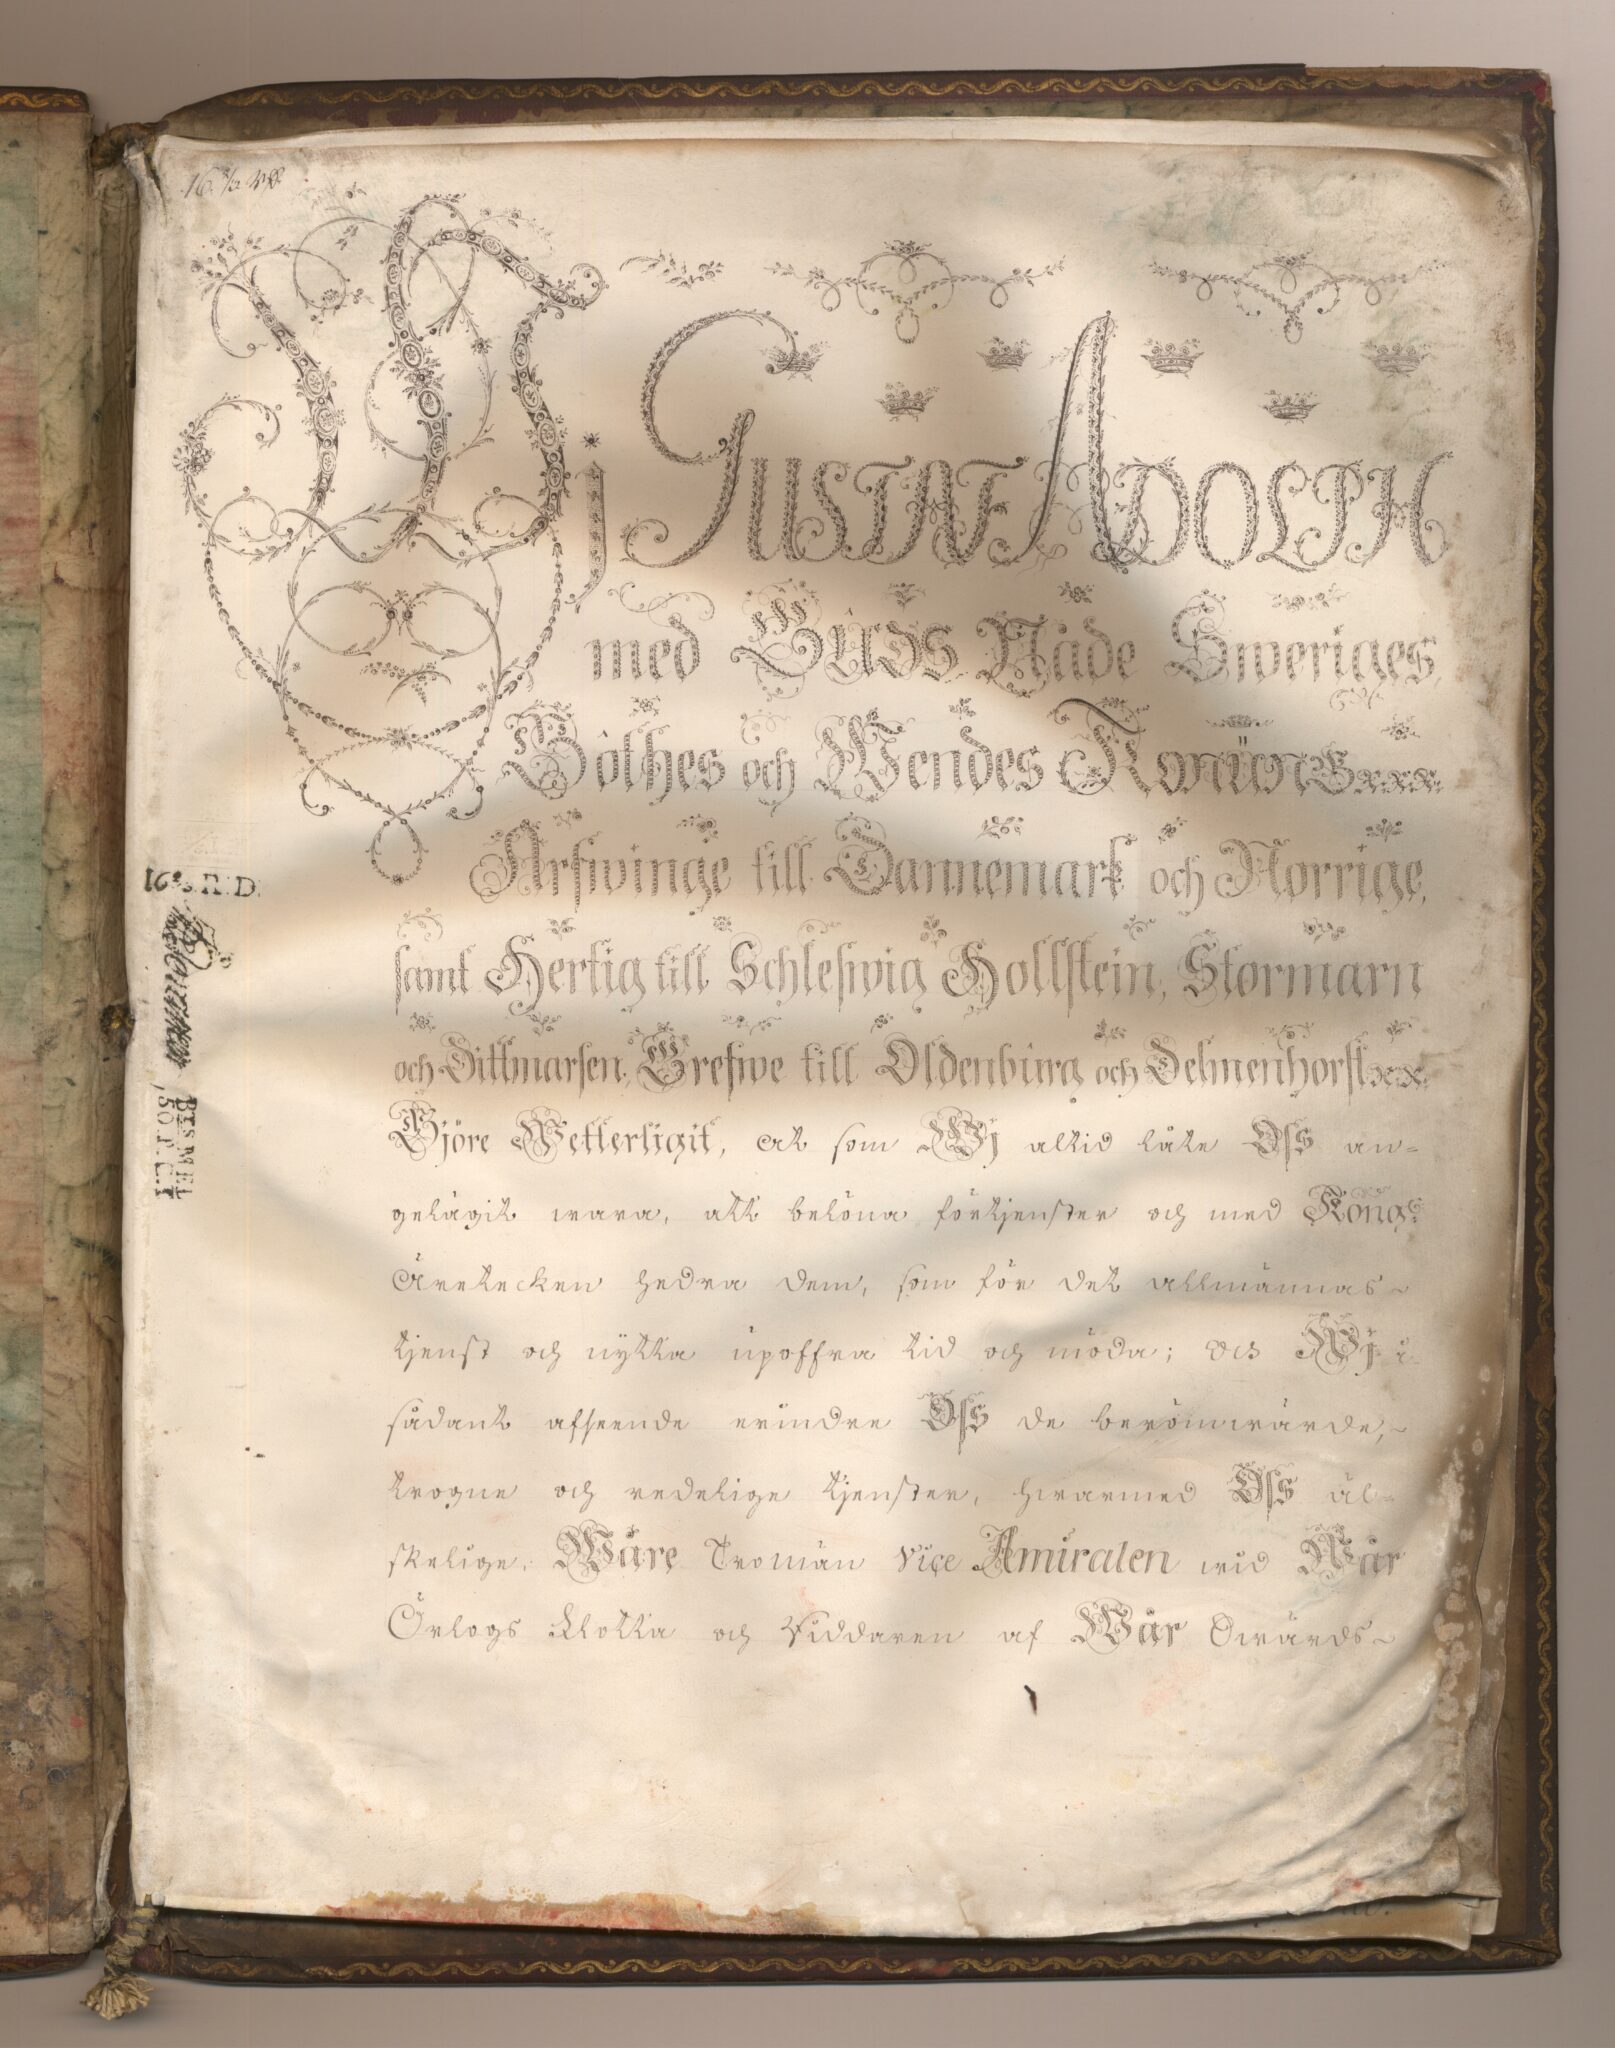 Wj GUSTAF ADOLPH
med Guds Nåde Sweriges,
Göthes och Wendes Konung x.x.x.
Arfwinge till Dannemark och Norrige,
samt Hertig till Schleswig Hollstein, Stormarn
och Dittmarsen, Grefwe till Oldenburg och Delmenhorst x.x.
Gjöre Wetterligit, at som Wj altid låte Oss an=
gelägit wara, att belöna förtjenster och med Kong:
Äretecken hedra dem, som för det allmännas
tjenst och nytta upoffra tid och möda; och Wj i
sådant afseende erindre Oss de berömwärde,
trogne och redelige tjenster, hwarmed Oss äl-
skelige, Wåre Tromän Vice Amiralen wid Wår
Örlogs Flotta och Riddaren af Wår Swärds